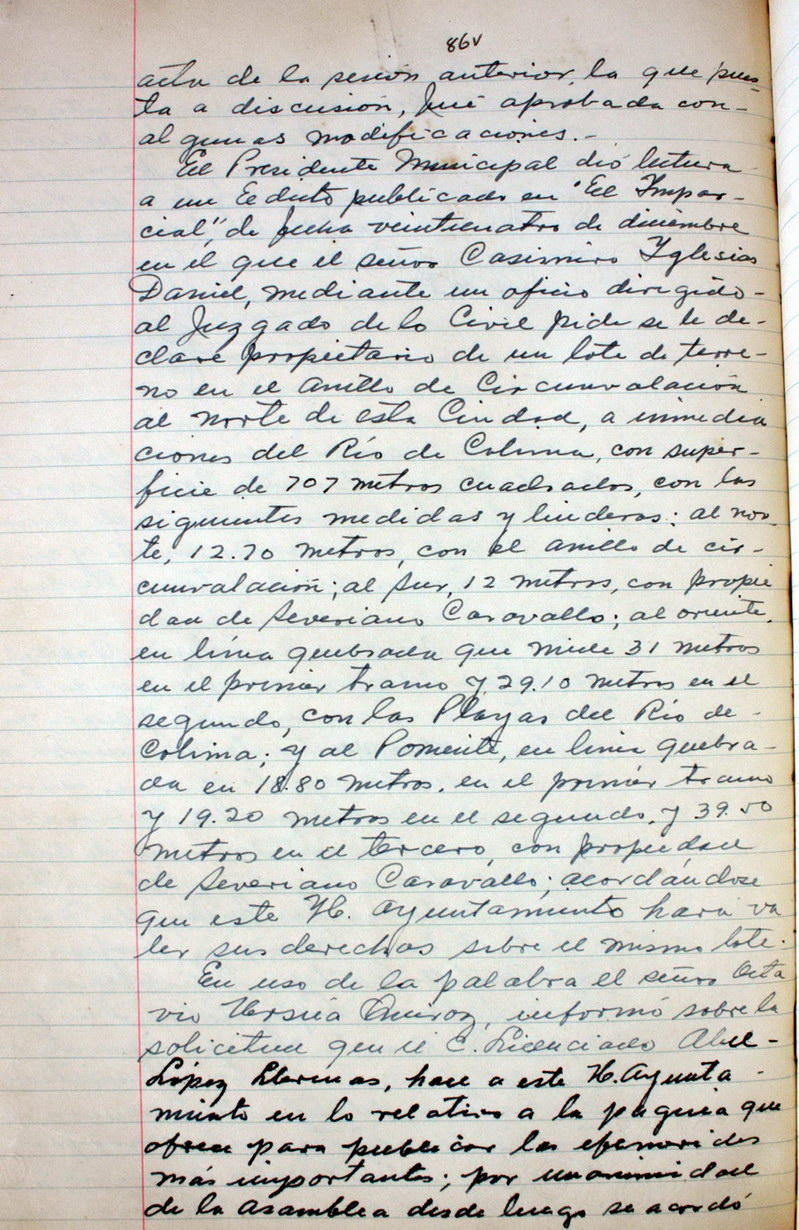 86v
acta de la sesión anterior, la que pues-
ta a discusión, fué aprobada con-
algunas modificaciones.-
El Presidente Municipal dió lectura
a un Edicto publicado en "El Impar-
cial", de fecha veinticuatro de diciembre
en el que el señor Casimiro Yglesias
Daniel, mediante un oficio dirigido-
al Juzgado de lo Civil pide se le de-
clare propietario de un lote de terre-
no en el Anillo de Circunvalación
al norte de esta Ciudad, a inmedia
ciones del Río de Colima, con super-
ficie de 707 metros cuadrados, con las
siguientes medidas y linderos: al nor-
te, 12.70 metros, con el anillo de cir-
cunvalación; al Sur, 12 metros, con propie
dad de Severiano Caravallo; al oriente,
en línea quebrada que mide 31 metros
en el primer tramo y 29.10 metros en el
segundo, con las Playas del Río de-
Colima; y al Poniente, en linea quebra-
da en 18.80 metros, en el primer tramo
y 19.20 metros en el segundo, y 39.50
metros en el tercero, con propiedad
de Severiano Caravallo; acordándose
que este H. Ayuntamiento hara va
ler sus derechos sobre el mismo lote.
En uso de la palabra el señor Octa
vio Ursúa Quiroz, informó sobre la
solicitud que el C. Licenciado Abel-
López Llerenas, hace a este H. Ayunta-
miento en lo relativo a la página que
ofrece para publicar las efemerides
más importantes; por unanimidad
de la asamblea desde luego se acordó